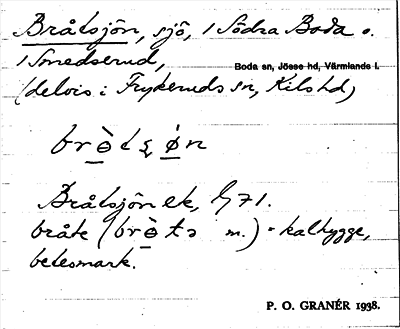 Bråtsjön, sjö, 1 Södra Boda o.
1 Smedserud,
Boda sn, Jösse hd, Värmlands l.
(delvis i Frykeruds sn, Kils hd)
Bråtsjön ek,
bråte m.) = kalhygge,
betesmark.
P. O. GRANÉR 1938.